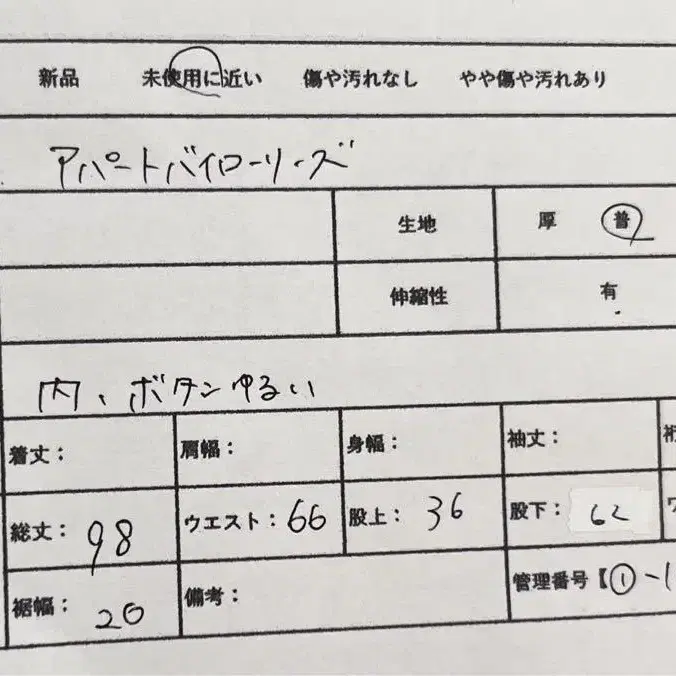 新品 未使用に近い 傷や汚れなし やや傷や汚れあり
アパートバイローリーズ
生地 厚 普
伸縮性 有
内、ボタンゆるい
着丈: 肩幅: 身幅: 袖丈: 裄
総丈: 98 ウエスト: 66 股上: 36 股下: 62
裾幅: 20 備考: 管理番号【①-1